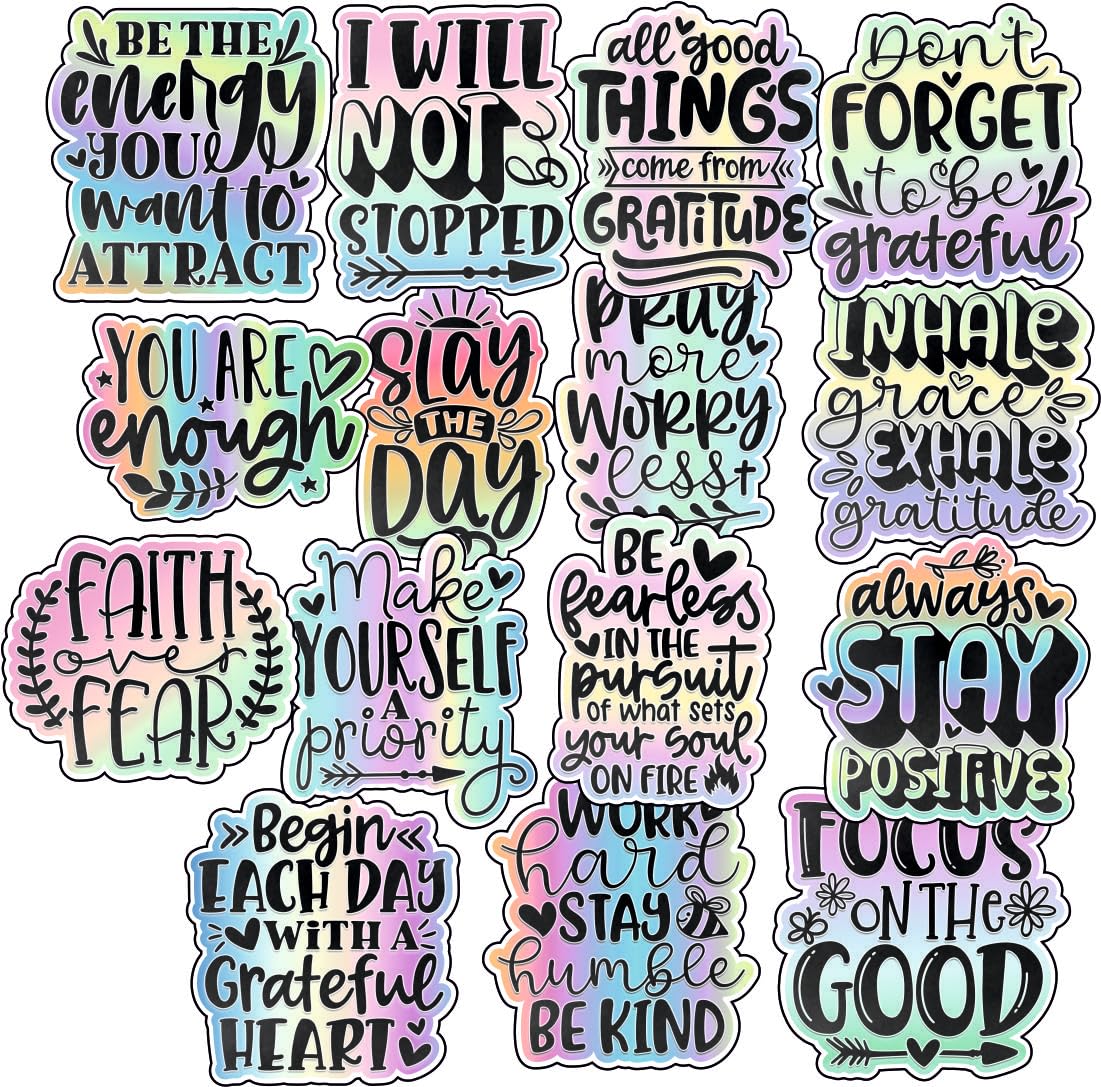 BE THE
energy
YOU
want to
ATTRACT
I WILL
NOT
be
STOPPED
all good
THINGS
come from
GRATITUDE
Don't
FORGET
to be
grateful
YOU ARE
enough
SLAY
THE
DAY
PRAY
more
WORRY
less
INHALE
grace
EXHALE
gratitude
FAITH
over
FEAR
Make
YOURSELF
A
priority
BE
fearless
IN THE
pursuit
OF what SETS
your soul
ON FIRE
always
STAY
POSITIVE
Begin
EACH DAY
WITH A
Grateful
HEART
WORK
hard
STAY
humble
BE KIND
FOCUS
ON THE
GOOD